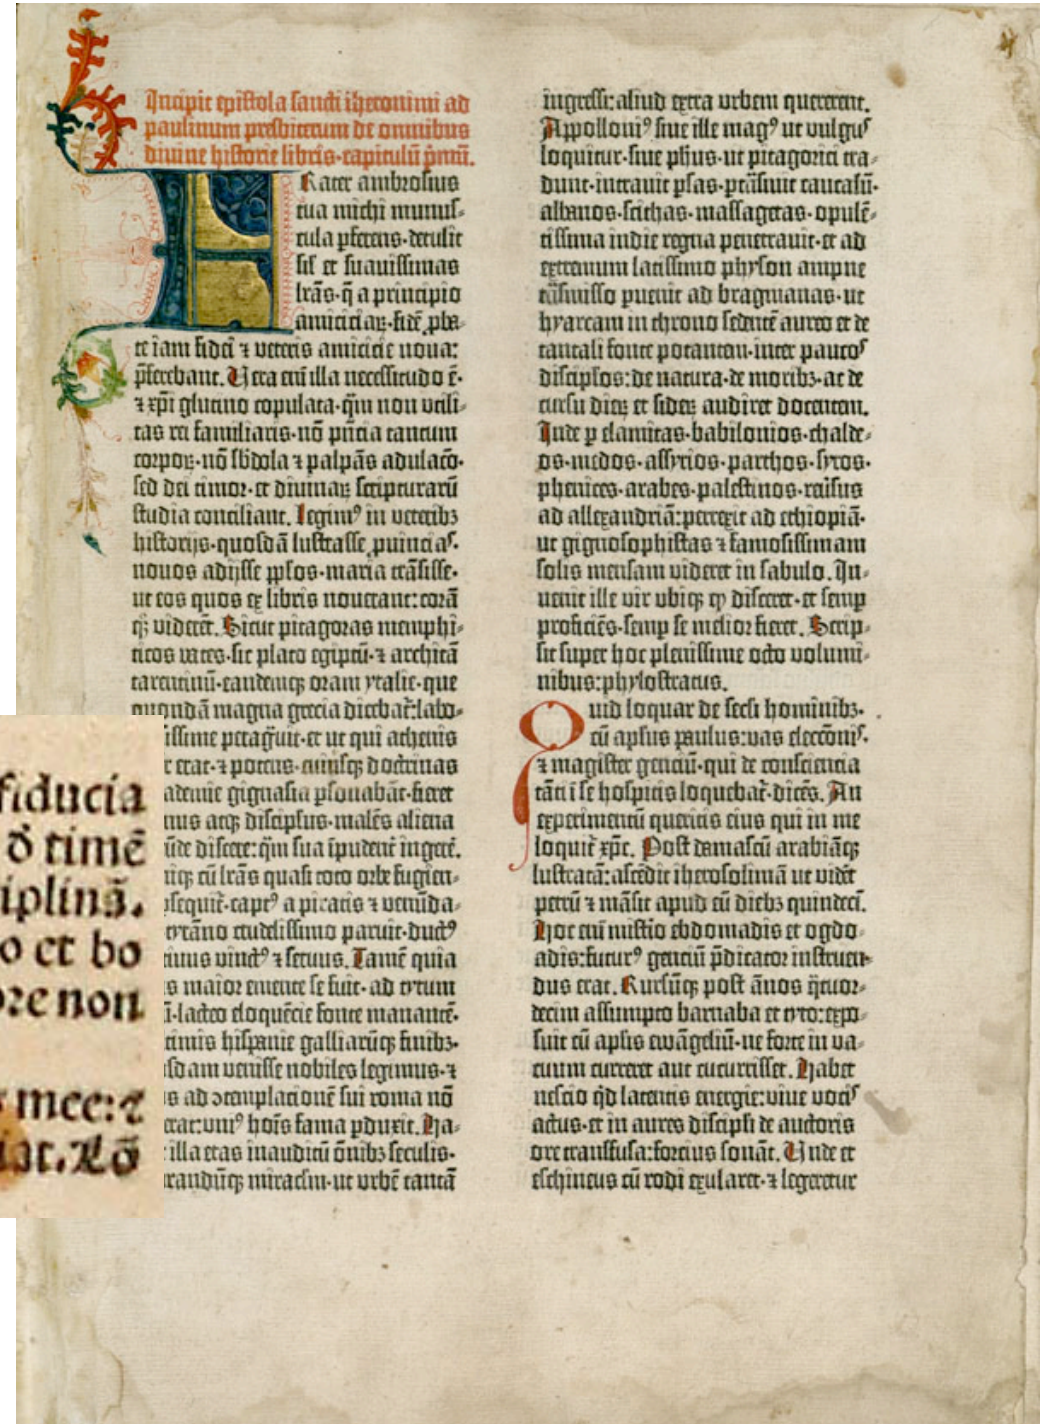 Incipit epistola sancti iheronimi ad
paulinum presbiterum de omnibus
divine historie libris·capitulũ pͥmũ.
FRater ambrosius
tua michi munus-
cula ꝑferens·detulit
sil̃ et suavissimas
lr̃as·q̃ a principio
amiciciaꝝ·fidẽ ꝓba-
te iam fidei ⁊ veteris amicicie nova:
p̃ferebant. Vera eni̅ illa necessitudo ẽ·
⁊ xp̃i glutino copulata·q̃m non utili-
tas rei familiaris·nõ pñcia tantum
corpoꝝ·nõ sbdola ⁊ palpãs adulac̃o·
sed dei timor·et divinaꝝ scripturarũ
studia conciliant. Legimꝰ in veteribꝫ
historijs·quosdã lustrasse ꝓvincias·
novos adijsse ꝓp̃los·maria trãsisse·
ut eos quos ex libris noverant: corã
qꝫ viderẽt. Sicut pitagoras memphi-
ticos vates·sic plato egiptũ·⁊ architã
tarentinũ·eandemqꝫ oram ytalie·que
quondã magna grecia dicebat̃: labo-
issime ꝑeg̃vit·et ut qui athenis
r erat·⁊ potens·cuiusqꝫ doctrinas
ademie gignasia ꝑsonabãt·fieret
nus atqꝫ discipl̃us·malẽs aliena
ũde discere: q̃m sua ĩpudent̃ ingerẽ.
iqꝫ cũ lr̃as quasi toto orbe fugien-
sequit̃·captꝰ a piratis ⁊ venũda-
tyrãno crudelissimo paruit·ductꝰ
tivus vinctꝰ ⁊ servus. Tamẽ quia
s maior emente se fuit·ad tytum
ĩ·lacteo eloquẽcie fonte manantẽ·
timis hispanie galliarũqꝫ finibꝫ·
sdam venisse nobiles legimus·⁊
s ad ꝯtemplationẽ sui roma nõ
erat: uniꝰ hoĩs fama ꝑduxit. Ha-
illa etas inauditũ õnibꝫ seculis·
randũqꝫ miraclm·ut urbẽ tantã
ingressi: aliud extra urbem quererent.
Appolloniꝰ sive ille magꝰ ut vulgus
loquitur·sive ph̃us·ut pitagorici tra-
dunt·intravit ꝑsas·ꝑtrãsivit caucasũ·
albanos·scithas·massagetas·opulẽ-
tissima indie regna penetravit·et ad
extremum latissimo physon ampne
trãsmisso ꝑvenit ad bragmanas·ut
hyarcam in throno sedentẽ aureo et de
tantali fonte potantem·inter paucos
discipl̃os: de natura·de moribꝫ·ac de
cursu dieꝝ et sideꝝ audiret docentem.
Inde ꝑ elamitas·babilonios·chalde-
os·medos·assyrios·parthos·syros·
phenices·arabes·palestinos·rev̾sus
ad allexandriã: perrexit ad ethiopiã·
ut gignosophistas ⁊ famosissimam
solis mensam videret in sabulo. In-
venit ille vir ubiqꝫ qđ disceret·et semꝑ
proficiẽs·semꝑ se melior fieret. Scrip-
sit super hoc plenissime octo volumi-
nibus: phylostratus.
Quid loquar de secl̃i hominibꝫ·
cũ apl̃us paulus: vas elecc̃onis·
⁊ magister genciũ·qui de consciencia
tãti ĩ se hospitis loquebat̃·dicẽs. An
experimentũ queritis eius qui in me
loquit̃ xp̃c. Post damascũ arabiãqꝫ
lustratã: ascẽdit iherosolimã ut vid̾et
petrũ ⁊ mãsit apud eũ diebꝫ quindeci̅.
Hoc eni̅ mist̾io ebdomadis et ogdo-
adis: futurꝰ genciũ p̃dicator instruen-
dus erat. Rursũqꝫ post ãnos q̃tuor-
decim assumpto barnaba et tyto: expo-
suit cũ apl̃is ewãgeliũ·ne forte in va-
cuum curreret aut cucurrisset. Habet
nescio qđ latentis energie: vive vocis
actus·et in aures discipl̃i de auctoris
ore transfusa: forcius sonãt. Vnde et
eschineus cũ rodi exularet·⁊ legeretur
fiducia
õ timẽ
iplinã.
o et bo
ore non
s mee: ⁊
iat. Lõ